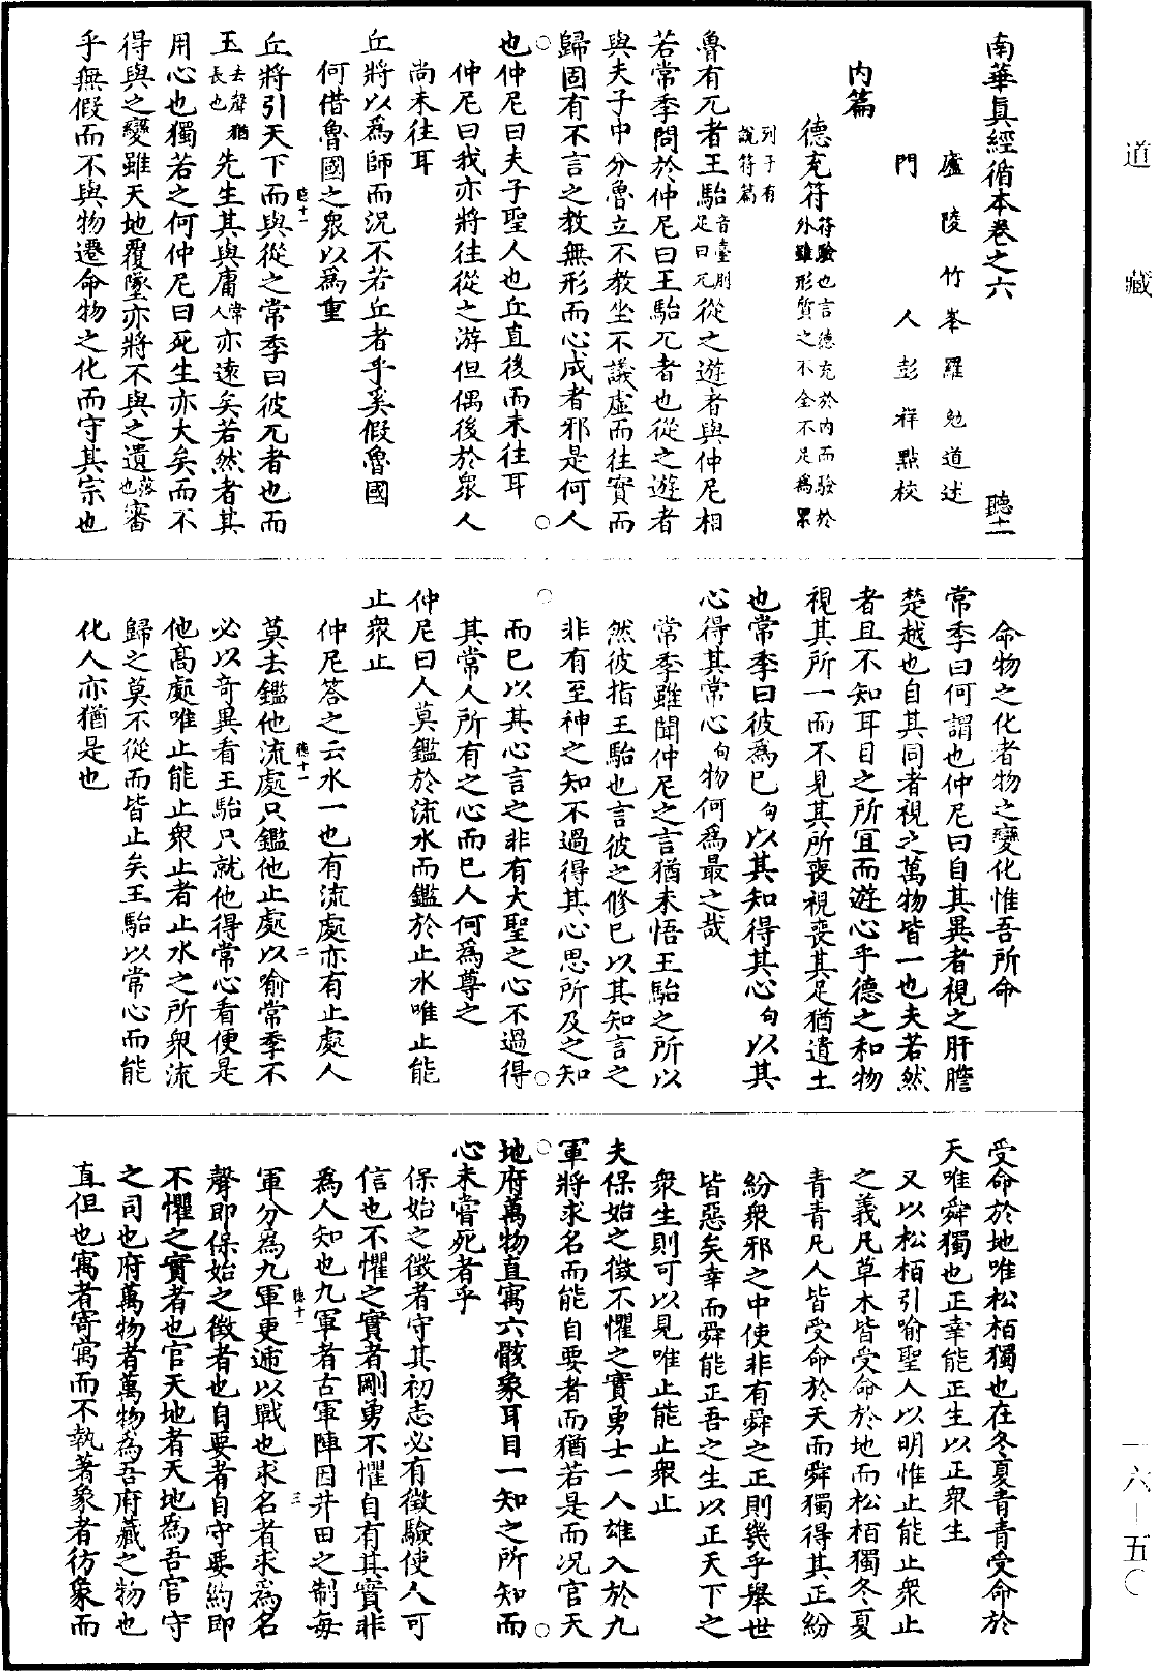 道藏
南華眞經循本卷之六　聽十一
廬陵竹峯羅勉道述
門人彭祥點校
內篇
德充符符驗也言德充於內而驗於外雖形質之不全不足爲累
列子有說符篇
魯有兀者王駘音臺刖足曰兀從之遊者與仲尼相
若常季問於仲尼曰王駘兀者也從之遊者
與夫子中分魯立不教坐不議虛而往實而
歸固有不言之教無形而心成者邪是何人
也仲尼曰夫子聖人也丘直後而未往耳
仲尼曰我亦將往從之游但偶後於衆人
尚未往耳
丘將以爲師而況不若丘者乎奚假魯國
何借魯國之衆以爲重
丘將引天下而與從之常季曰彼兀者也而
王去聲猶長也先生其與庸常人亦遠矣若然者其
用心也獨若之何仲尼曰死生亦大矣而不
得與之變雖天地覆墜亦將不與之遺落也審
乎無假而不與物遷命物之化而守其宗也
命物之化者物之變化惟吾所命
常季曰何謂也仲尼曰自其異者視之肝膽
楚越也自其同者視之萬物皆一也夫若然
者且不知耳目之所宜而遊心乎德之和物
視其所一而不見其所喪視喪其足猶遺土
也常季曰彼爲已句以其知得其心句以其
心得其常心句物何爲最之哉
常季雖聞仲尼之言猶未悟王駘之所以
然彼指王駘也言彼之修已以其知言之
非有至神之知不過得其心思所及之知
而已以其心言之非有大聖之心不過得
其常人所有之心而已人何爲尊之
仲尼曰人莫鑑於流水而鑑於止水唯止能
止衆止
仲尼答之云水一也有流處亦有止處人
莫去鑑他流處只鑑他止處以喻常季不
必以奇異看王駘只就他得常心看便是
他高處唯止能止衆止者止水之所衆流
歸之莫不從而皆止矣王駘以常心而能
化人亦猶是也
受命於地唯松栢獨也在冬夏青青受命於
天唯舜獨也正幸能正生以正衆生
又以松栢引喻聖人以明惟止能止衆止
之義凡草木皆受命於地而松栢獨冬夏
青青凡人皆受命於天而舜獨得其正紛
紛衆邪之中使非有舜之正則幾乎舉世
皆惡矣幸而舜能正吾之生以正天下之
衆生則可以見唯止能止衆止
夫保始之徵不懼之實勇士一人雄入於九
軍將求名而能自要者而猶若是而況官天
地府萬物直寓六骸象耳目一知之所知而
心未嘗死者乎
保始之徵者守其初志必有徵驗使人可
信也不懼之實者剛勇不懼自有其實非
爲人知也九軍者古軍陣因井田之制每
軍分爲九軍更逓以戰也求名者求爲名
聲即保始之徵者也自要者自守要約即
不懼之實者也官天地者天地為吾官守
之司也府萬物者萬物為吾府藏之物也
直但也寓者寄寓而不執著象者彷象而
聽十一
二
聽十一
三
一六—五〇